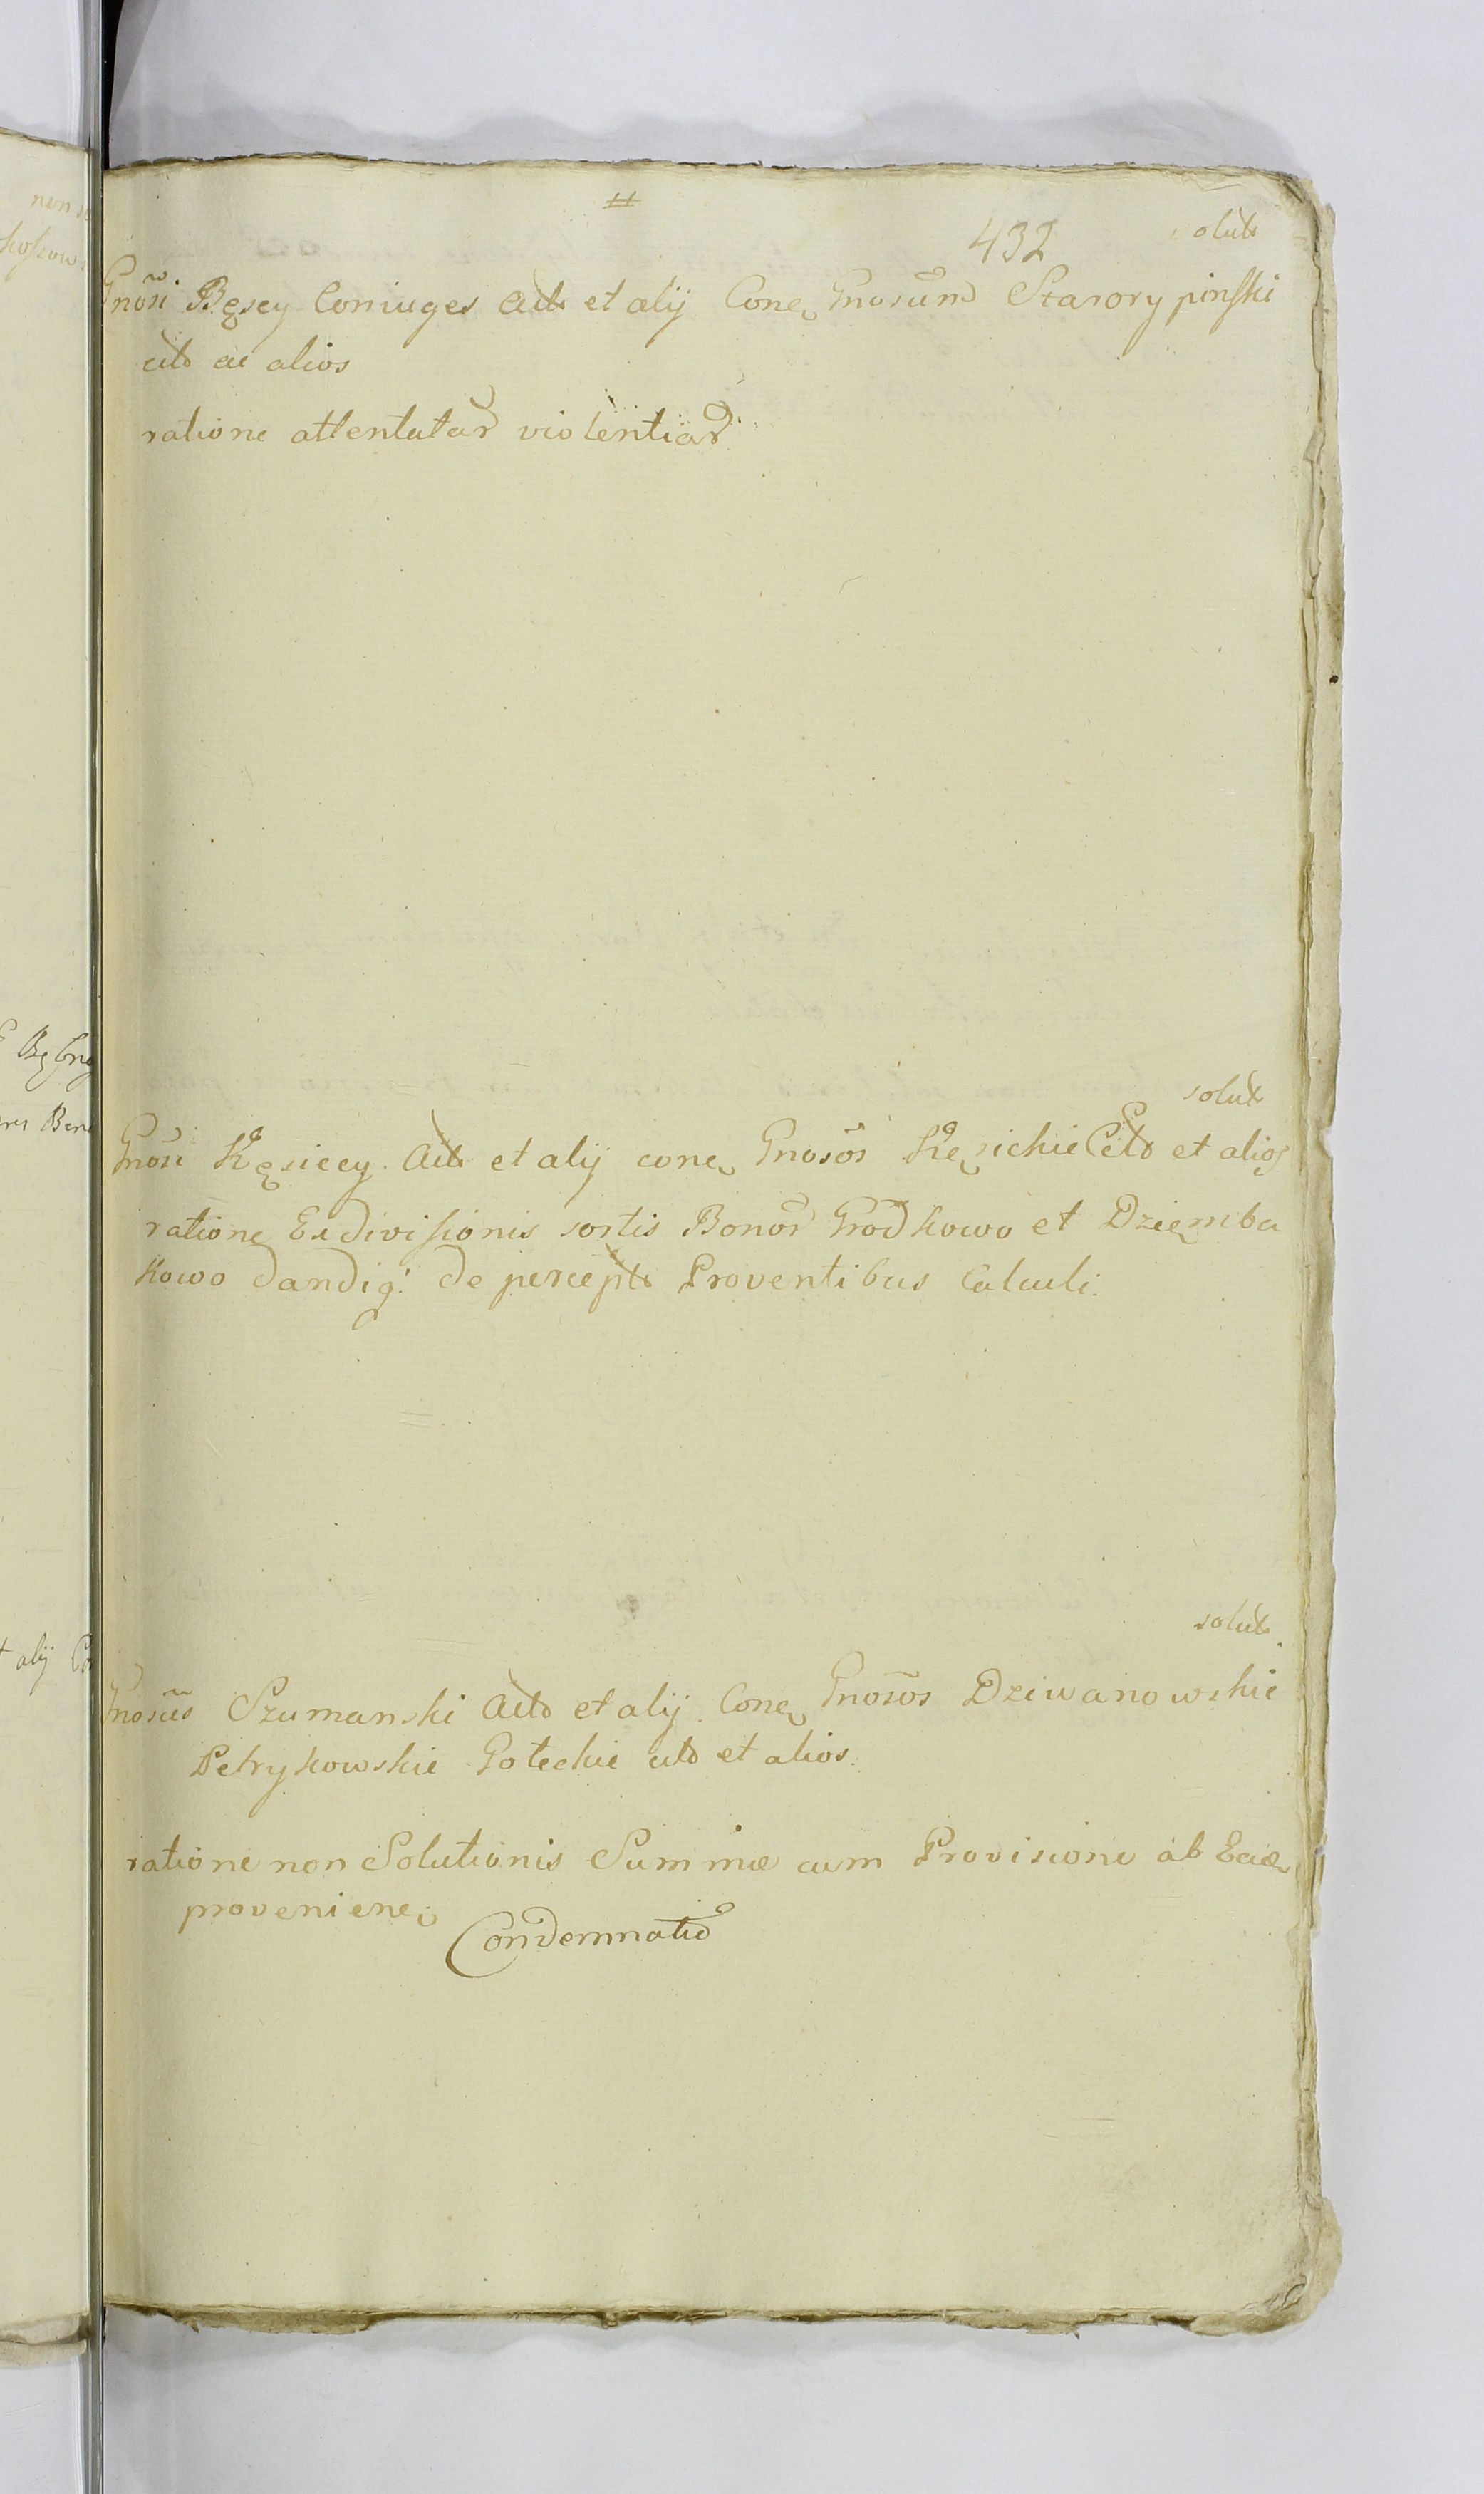 432 solut
Gnosi Bęscy Coniuges Act et alij Conc Gnosum Starorypinski
cit ac alios
ratione attentatar violentiar
solut
Gnosi Kęsiccy Act et alij conc Gnosos Kęsickie Cit et alios
ratione Exdivisionis sortis Bonor Grodkowo et Dziemba
kowo dandiq: de percept Proventibus Calculi.
solut
Gnosus Szumanski Act et alij Conc Gnosos Dziwanowskie
Petrykowskie Potockie cit et alios.
ratione non Solutionis Summæ cum Provisione ab Eade
provenienc
Condemnatio